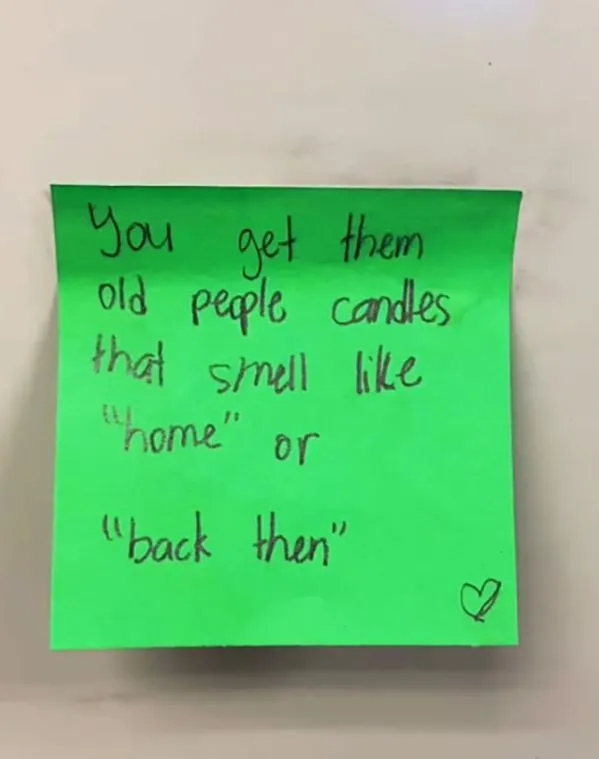 You get them
old people candles
that smell like
"home" or
"back then"